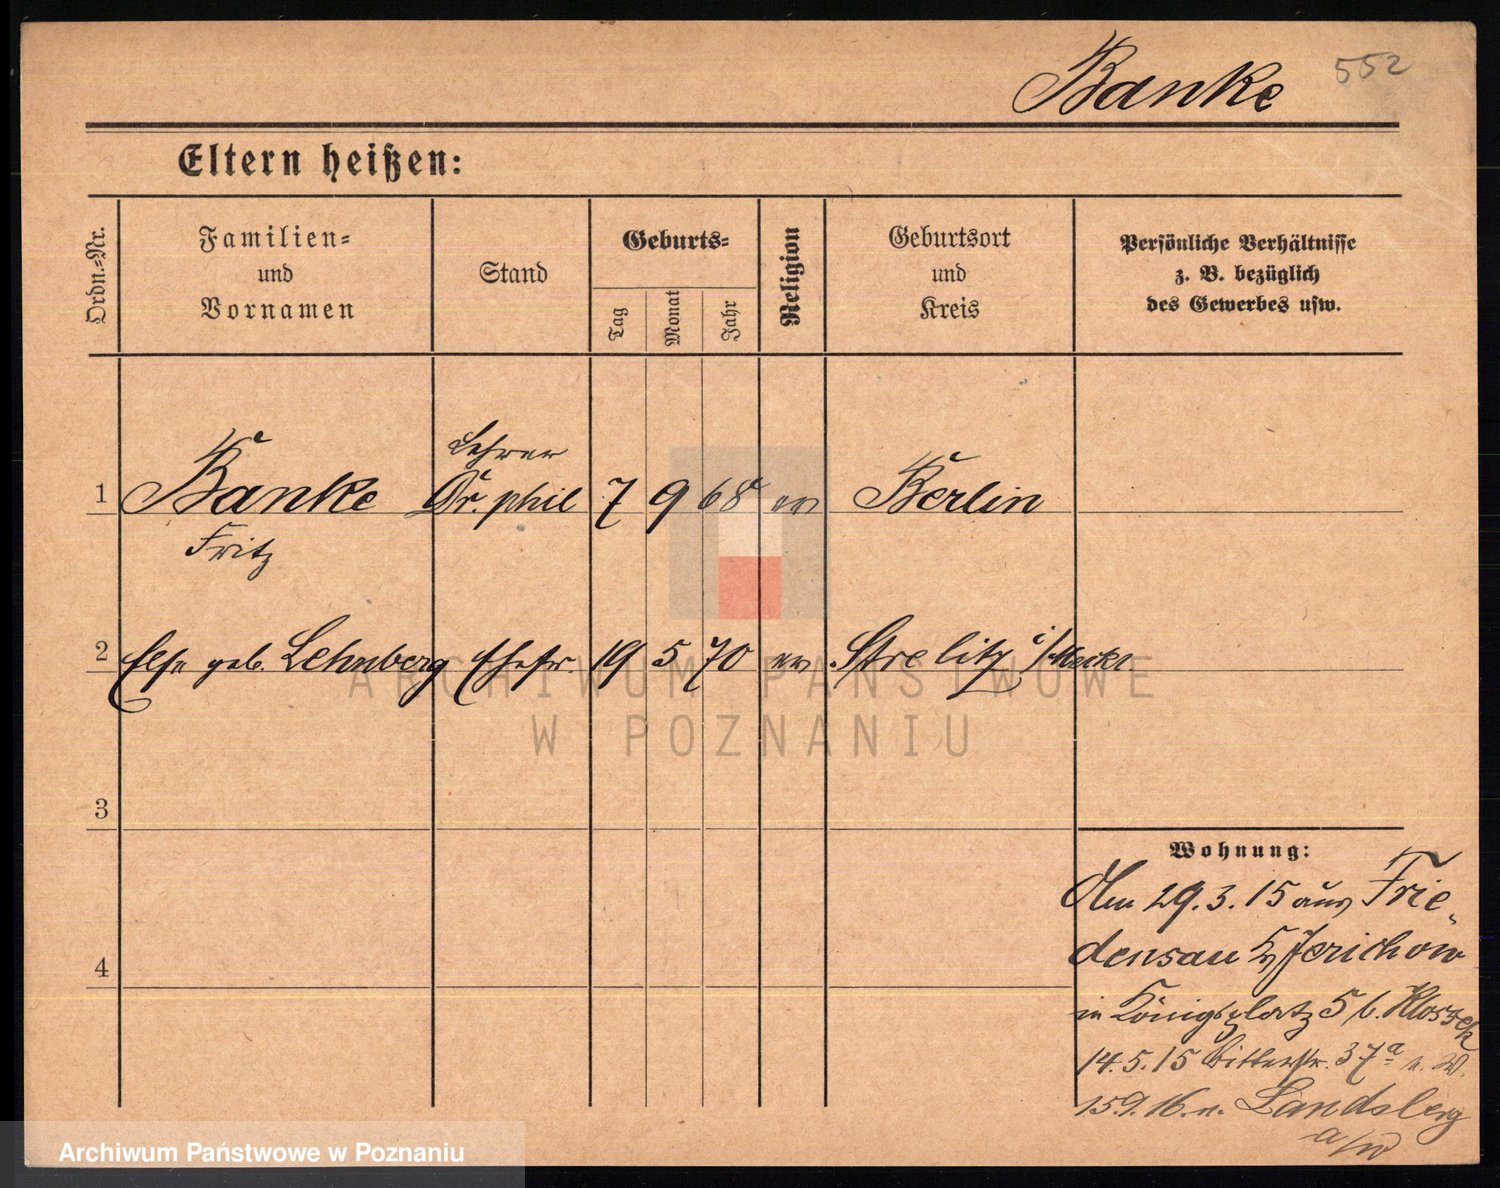 Banke 552
Eltern heißen:
Ordn.-Nr.
Familien-
und
Vornamen
Stand
Geburts-
Tag
Monat
Jahr
Religion
Geburtsort
und
Kreis
Persönliche Verhältnisse
z. B. bezüglich
des Gewerbes usw.
Lehrer
1 Banke Dr. phil 7 9 68 ev Berlin
Fritz
2 Else geb. Lehnberg Ehefr. 19 5 70 ev Strelitz i/Meckl
ARCHIWUM PAŃSTWOWE
W POZNANIU
3
Wohnung:
Am 29.3.15 aus Frie-
densau Jerichow
4
in Königsplatz 5 b. Klossek
14.5.15 Ritterstr. 37a
15.9.16. n. Landsberg
a/W
Archiwum Państwowe w Poznaniu